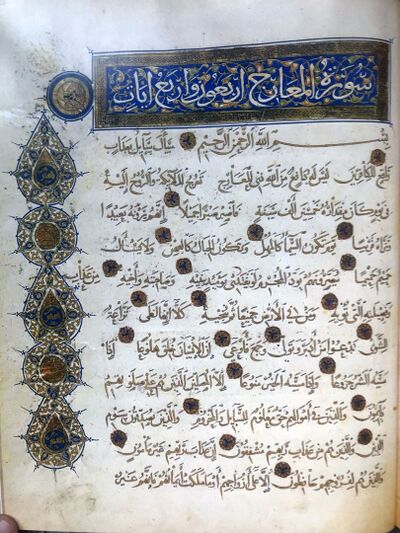 سورة المعارج اربعون واربع ايات
بسم الله الرحمن الرحيم سأل سائل بعذاب
واقع للكافرين ليس له دافع من الله ذي المعارج تعرج الملائكة والروح إليه
في يوم كان مقداره خمسين ألف سنة فاصبر صبرا جميلا إنهم يرونه بعيدا
ونراه قريبا يوم تكون السماء كالمهل وتكون الجبال كالعهن ولا يسأل
حميم حميما يبصرونهم يود المجرم لو يفتدي يومئذ ببنيه وصاحبته وأخيه
من عذاب
وفصيلته التي تؤويه ومن في الأرض جميعا ثم ينجيه كلا إنها لظى نزاعة
للشوى تدعو من أدبر وتولى وجمع فأوعى إن الإنسان خلق هلوعا إذا
مسه الشر جزوعا وإذا مسه الخير منوعا إلا المصلين الذين هم على صلاتهم
دائمون والذين في أموالهم حق معلوم للسائل والمحروم والذين يصدقون بيوم
الدين والذين هم من عذاب ربهم مشفقون إن عذاب ربهم غير مأمون
والذين هم لفروجهم حافظون إلا على أزواجهم أو ما ملكت أيمانهم فإنهم غير